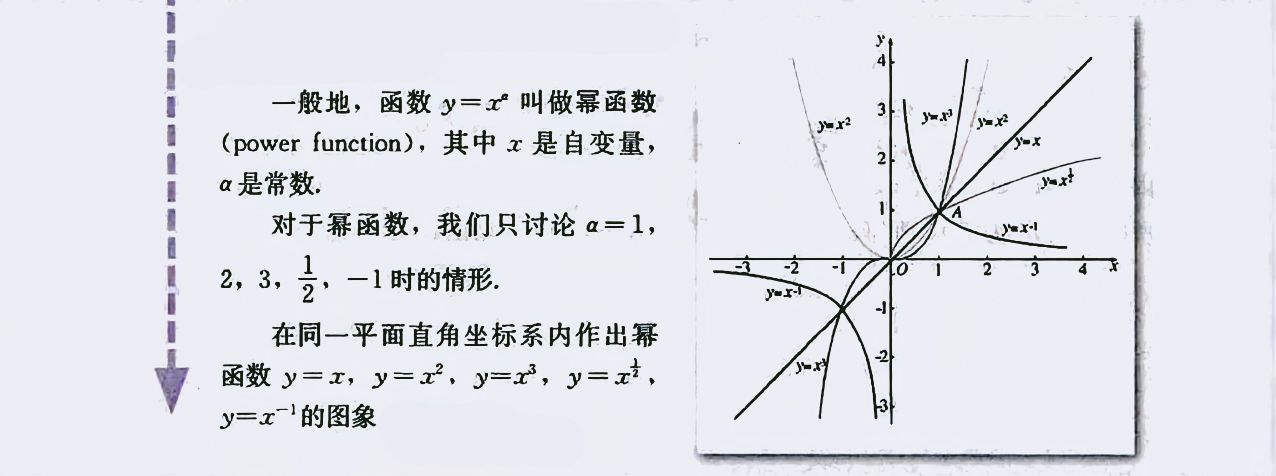 一般地，函数 y=xᵅ 叫做幂函数
(power function)，其中 x 是自变量，
α是常数.
对于幂函数，我们只讨论 α=1，
2，3，1/2，-1时的情形.
在同一平面直角坐标系内作出幂
函数 y=x，y=x²，y=x³，y=x^(1/2)，
y=x⁻¹的图象
y
4
y=x²
3
y=x³
y=x²
y=x
2
y=x^(1/2)
1
A
y=x⁻¹
-3 -2 -1 O 1 2 3 4 x
y=x⁻¹
-1
-2
y=x³
-3